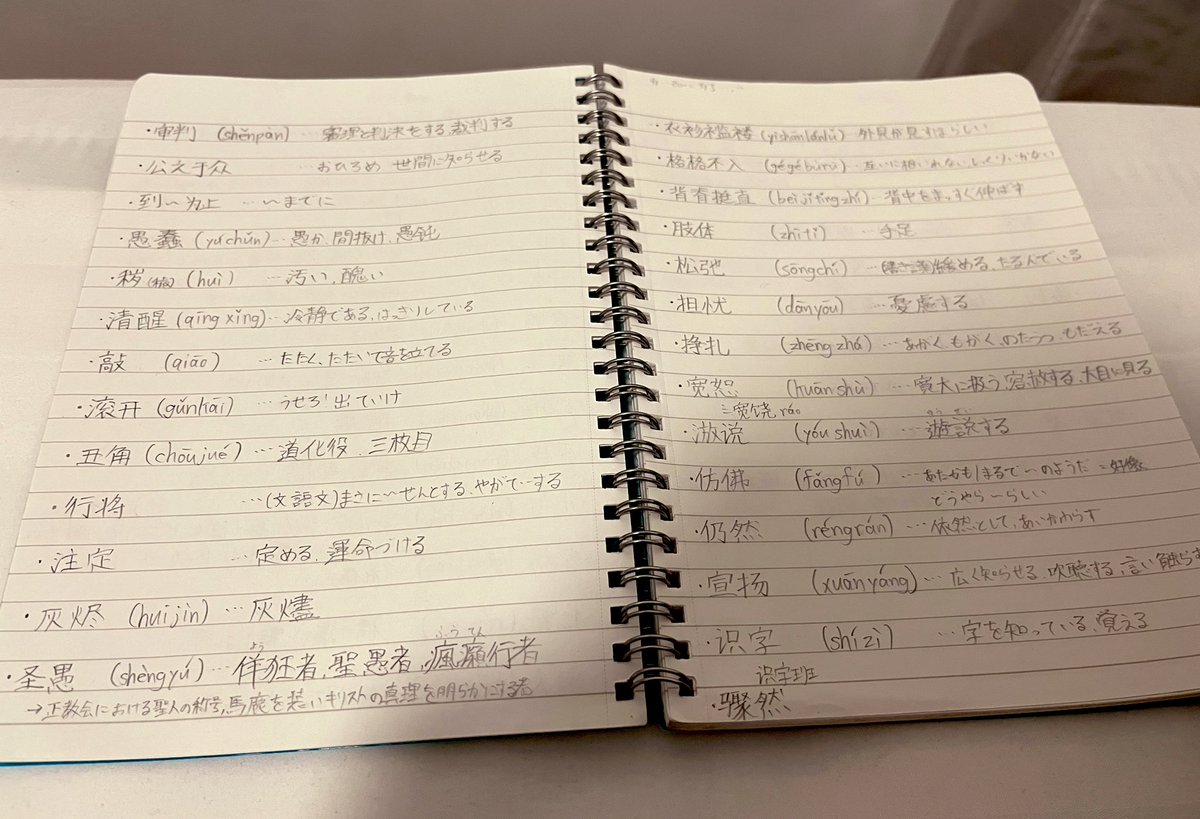 ・审判 (shěnpàn) … 審理と判決をする, 裁判する
・公之于众 … おひろめ 世間に知らせる
・到〜为止 … 〜までに
・愚蠢 (yúchǔn) … 愚か, 間抜け, 愚钝
・秽 (穢) (huì) … 汚い, 醜い
・清醒 (qīng xǐng) … 冷静である, はっきりしている
・敲 (qiāo) … たたく, たたいて音を立てる
・滚开 (gǔnkāi) … うせろ! 出ていけ
・丑角 (chǒujué) … 道化役, 三枚目
・行将 … (文語文) まさに〜せんとする, やがて〜する
・注定 … 定める, 運命づける
・灰烬 (huījìn) … 灰燼
・圣愚 (shèngyú) … 佯狂者, 聖愚者, 瘋癲行者
よう ふうてん
→正教会における聖人の称号, 馬鹿を装いキリストの真理を明らかにする者
・衣衫褴褛 (yīshānlánlǚ) 外見が見すぼらしい
・格格不入 (gégébúrù) … 互いに相いれない, しっくりいかない
・背脊挺直 (bèijǐtǐngzhí) … 背中をまっすぐ伸ばす
・肢体 (zhītǐ) … 手足
・松弛 (sōngchí) … 緩める, たるんでいる
・担忧 (dānyōu) … 憂慮する
・挣扎 (zhēngzhá) … あがく, もがく, のたうつ, もだえる
・宽恕 (kuānshù) … 寛大に扱う, 容赦する, 大目に見る
=宽饶 ráo
・游说 (yóushuì) … 遊説する
ゆうぜい
・仿佛 (fǎngfú) … あたかも/まるで〜のようだ =好像
どうやら〜らしい
・仍然 (réngrán) … 依然として, あいかわらず
・宣扬 (xuānyáng) … 広く知らせる, 吹聴する, 言い触らす
・识字 (shízì) … 字を知っている, 覚える
识字班
・骤然